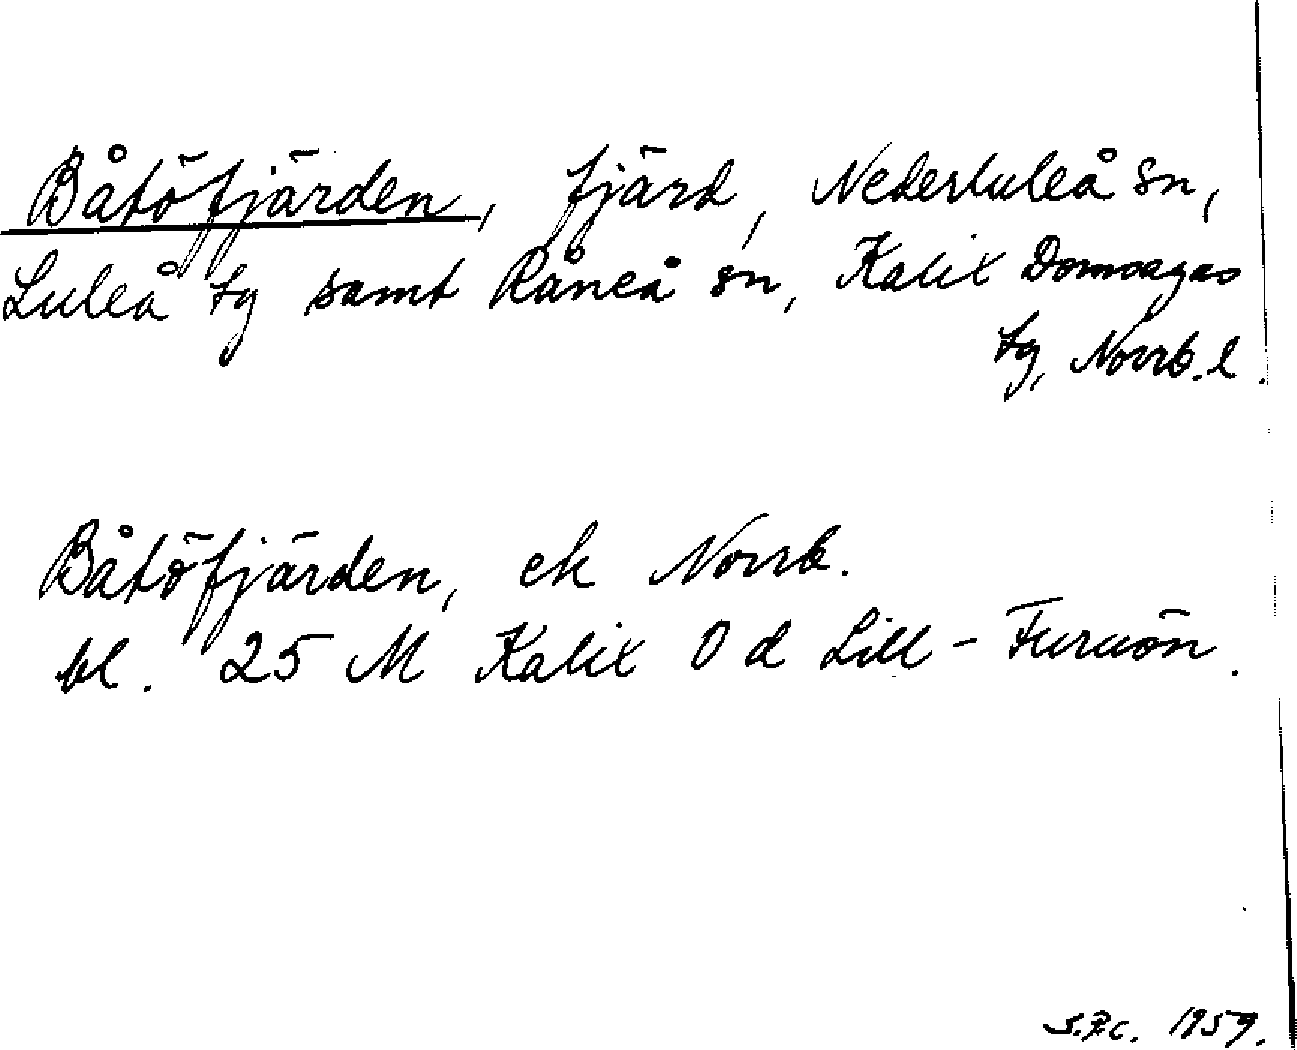 Båtöfjärden, fjärd, Nederluleå sn,
Luleå tg samt Råneå sn, Kalix Domsagas
tg, Norrb. l.
Båtöfjärden, ek Norrb.
bl. 25 M Kalix O d Lill-Furuön.
1959.